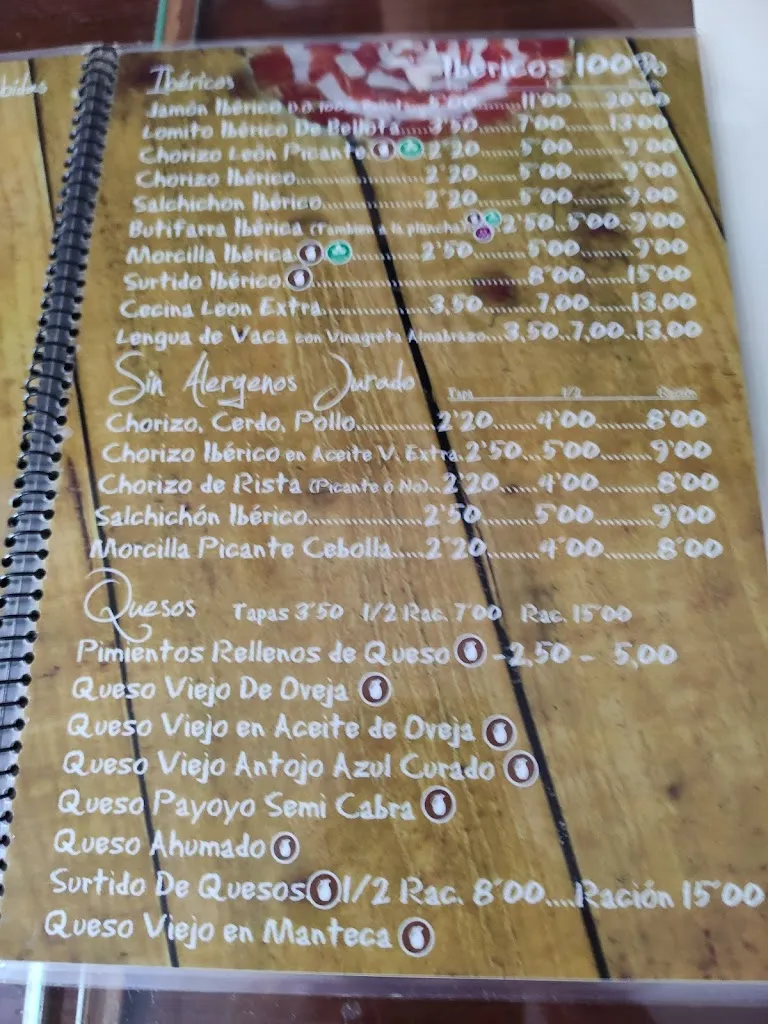 bidas
Ibéricos Ibéricos 100%
Jamón Ibérico D.O. 100% 11'00 20'00
Lomito Ibérico De Bellota....3'50......7'00......13'00
Chorizo León Picante 2'20......5'00......9'00
Chorizo Ibérico..................2'20......5'00......9'00
Salchichon Ibérico..............2'20......5'00......9,00
Butifarra Ibérica (Tambien a la plancha) 2'50..5'00..9'00
Morcilla Ibérica............2'50.......5'00.......9'00
Surtido Ibérico.................................8'00.......15'00
Cecina Leon Extra.............3,50.......7,00.......13,00
Lengua de Vaca con Vinagreta Almabrazo...3,50..7,00..13,00
Sin Alergenos Jurado Tapa 1/2 Ración
Chorizo, Cerdo, Pollo.............2'20.......4'00.......8'00
Chorizo Ibérico en Aceite V. Extra.2'50...5'00......9'00
Chorizo de Rista (Picante ó No)..2'20......4'00.......8'00
Salchichón Ibérico..................2'50.........5'00.......9'00
Morcilla Picante Cebolla.....2'20........4'00........8'00
Quesos Tapas 3'50 1/2 Rac. 7'00 Rac. 15'00
Pimientos Rellenos de Queso -2,50 - 5,00
Queso Viejo De Oveja
Queso Viejo en Aceite de Oveja
Queso Viejo Antojo Azul Curado
Queso Payoyo Semi Cabra
Queso Ahumado
Surtido De Quesos 1/2 Rac. 8'00....Ración 15'00
Queso Viejo en Manteca